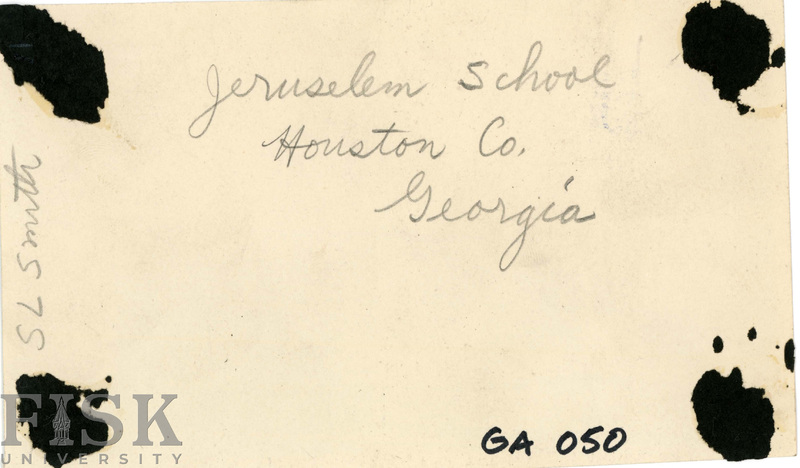 Jeruselem School
Houston Co.
Georgia
SL Smith
GA 050
FISK
UNIVERSITY